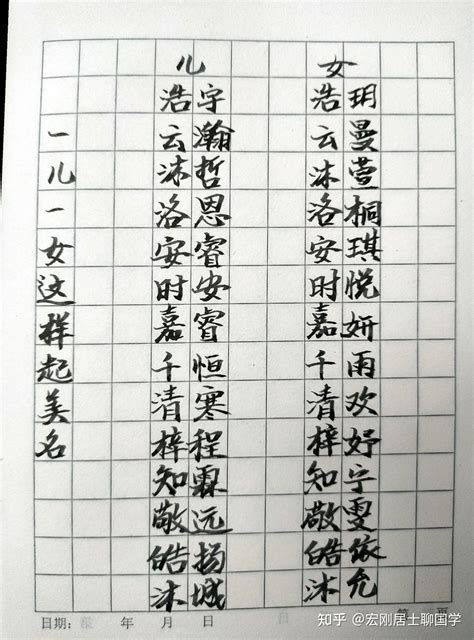 一儿一女这样起美名
儿 女
浩宇 浩玥
云瀚 云曼
沐哲 沐萱
洛恩 洛桐
安睿 安琪
时安 时悦
嘉睿 嘉妍
千恒 千雨
清寒 清欢
梓程 梓妤
知霖 知宁
敬远 敬雯
皓扬 皓依
沐城 沐允
日期: 年 月 日 第 页
知乎 @宏刚居士聊国学